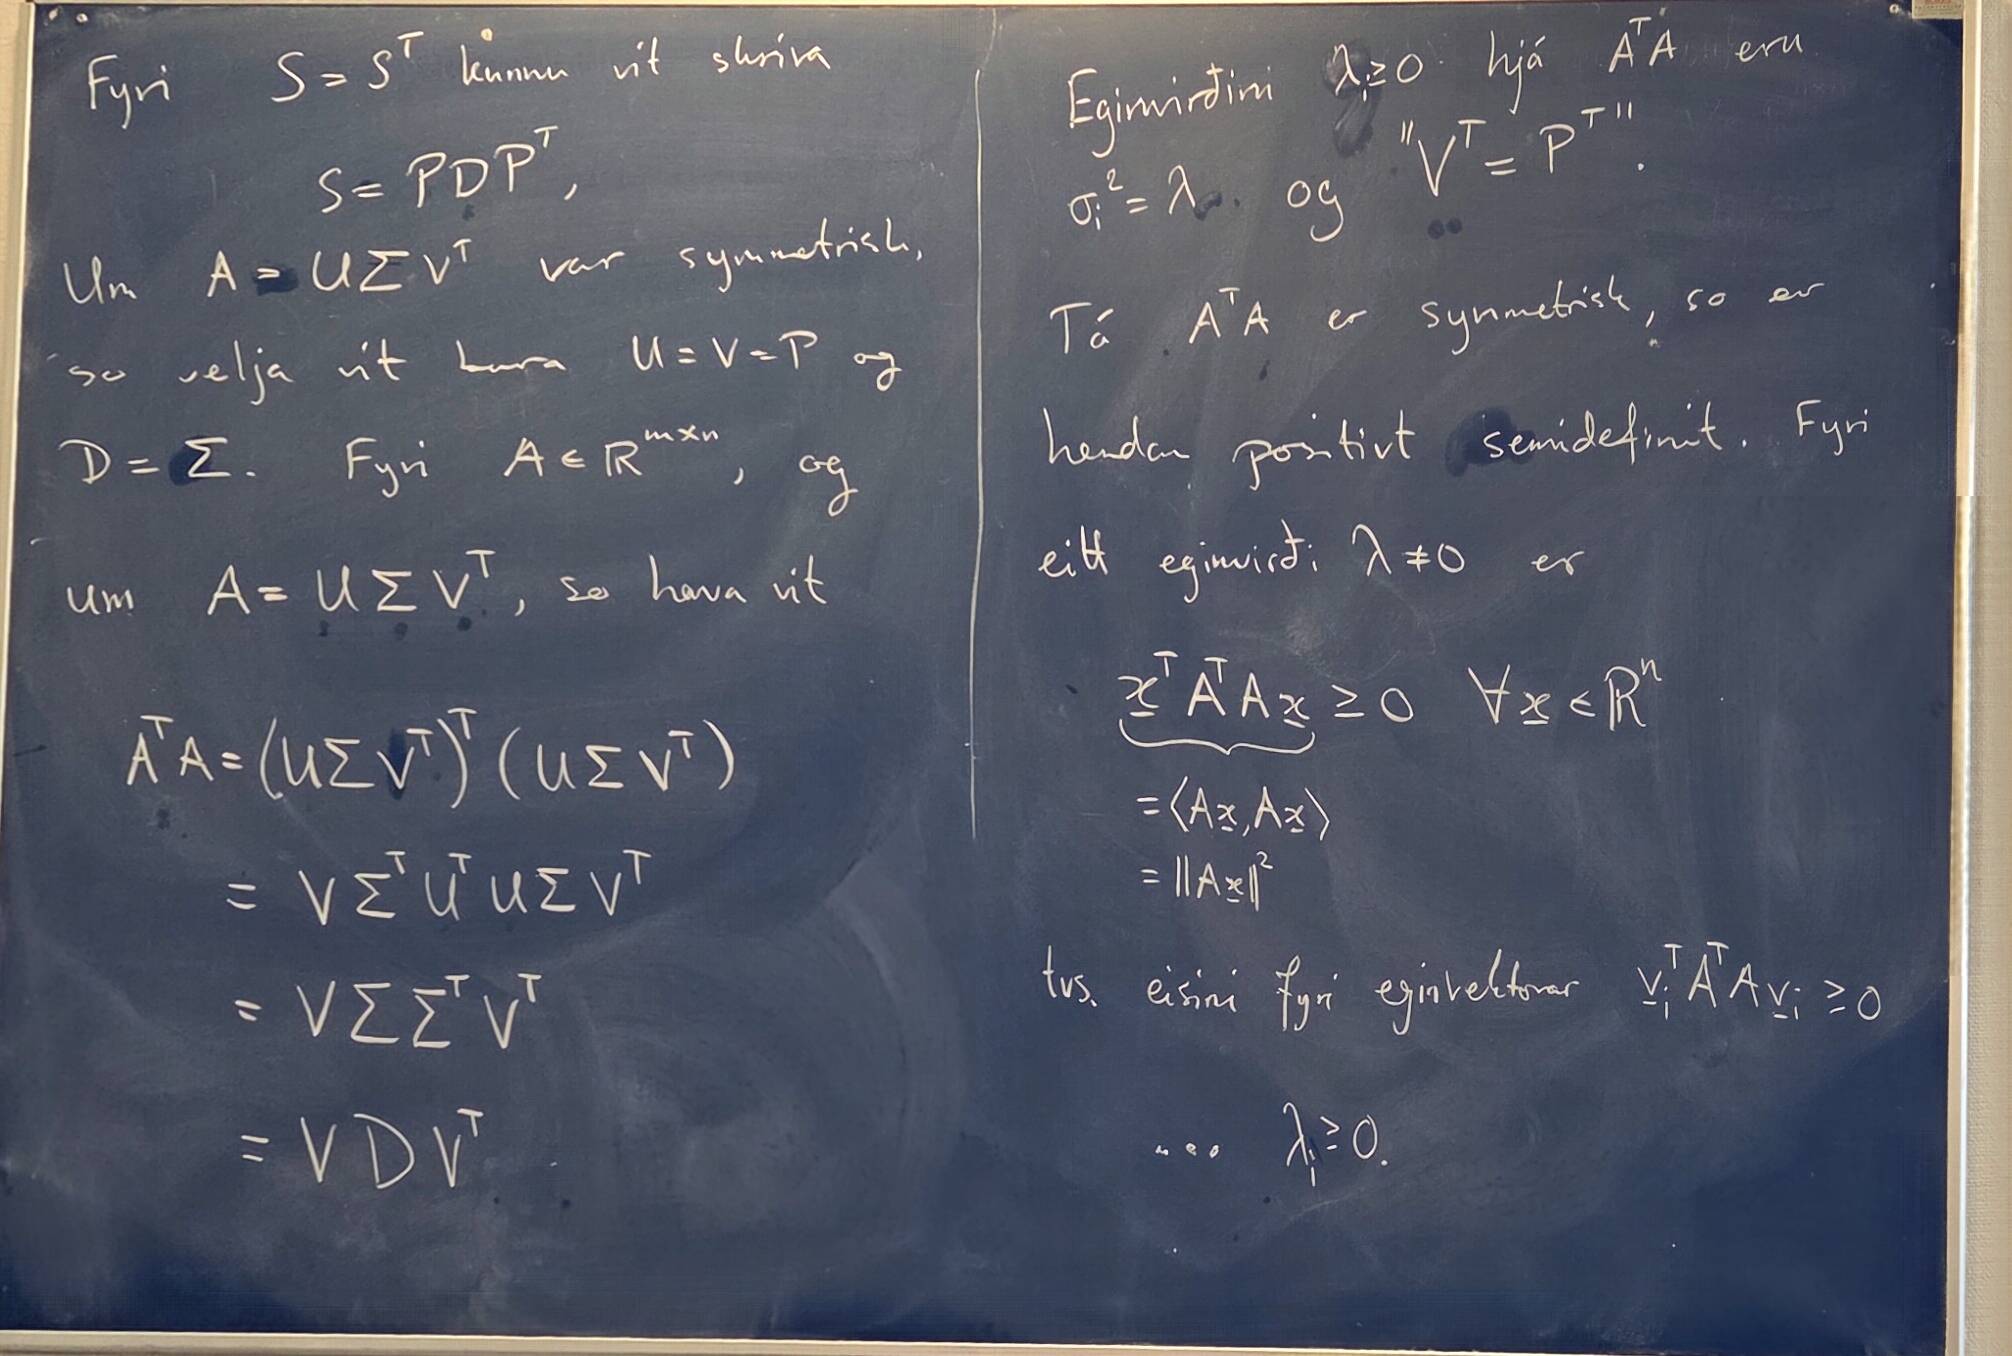 Fyri S = Sᵀ kunnu vit skriva
S = PDPᵀ,
Um A = UΣVᵀ var symmetrisk,
so velja vit bara U = V = P og
D = Σ. Fyri A ∈ ℝᵐˣⁿ, og
um A = UΣVᵀ, so hava vit
AᵀA = (UΣVᵀ)ᵀ(UΣVᵀ)
= VΣᵀUᵀUΣVᵀ
= VΣΣᵀVᵀ
= VDVᵀ
Eginvirðini λᵢ ≥ 0 hjá AᵀA eru
σᵢ² = λ. og "Vᵀ = Pᵀ".
Tá AᵀA er symmetrisk, so er
hendan positivt semidefinit. Fyri
eitt eginvirði λ ≠ 0 er
xᵀAᵀAx ≥ 0 ∀x ∈ ℝⁿ
= ⟨Ax, Ax⟩
= ‖Ax‖²
tvs. eisini fyri eginvektorar vᵢᵀAᵀAvᵢ ≥ 0
... λᵢ ≥ 0.